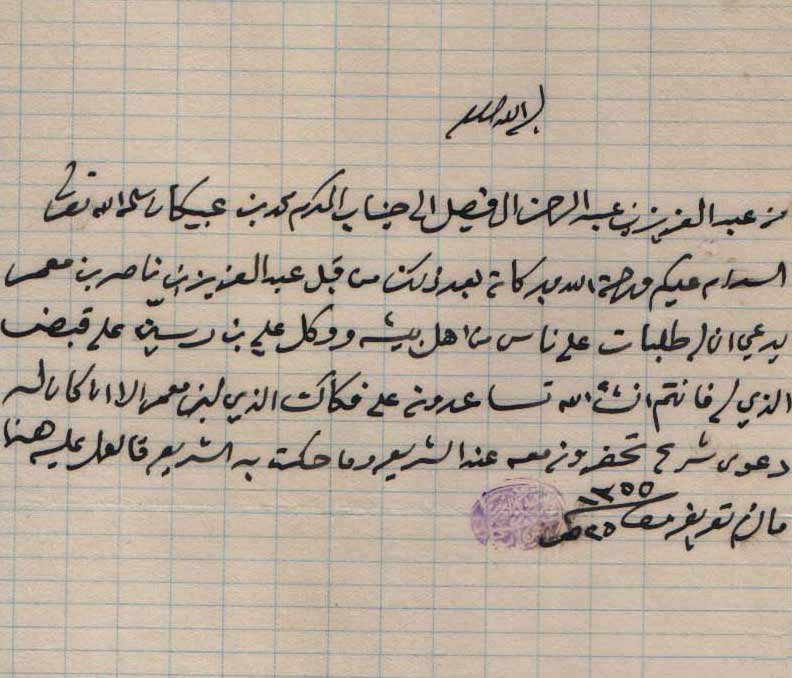 بسم الله
من عبد العزيز بن عبد الرحمن ال فيصل الى جناب المكرم محمد بن عبيكان سلمه الله تعالى
السلام عليكم ورحمة الله وبركاته بعد ذلك من قبل عبد العزيز بن ناصر بن معمر
يدعي ان له طلبات على ناس من اهل بيشه ووكل علي بن رسين على قبض
الذي له فانتم انشاء الله تساعدونه على فكاك الذي لبن معمر الا ان كان له
دعوى شرع تحضرونه معه عند الشريعه وما حكمت به الشريعه فالعمل عليه هذا
مالزم تعريفه ٢٥ ١٣٥٥